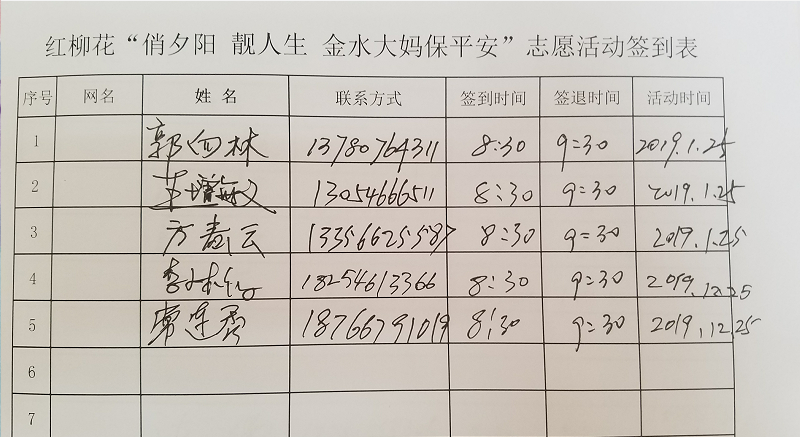 红柳花“俏夕阳 靓人生 金水大妈保平安”志愿活动签到表
序号 网名 姓名 联系方式 签到时间 签退时间 活动时间
1 郭向林 13780764311 8:30 9:30 2019.1.25
2 13054666511 8:30 9:30 2019.1.25
3 方 云 13356625587 8:30 9:30 2019.1.25
4 李 18254613366 8:30 9:30 2019.12.25
5 常连 18766791019 8:30 9:30 2019.12.25
6
7